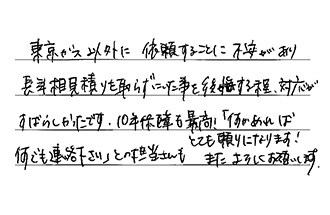 東京ガス以外に 依頼することに 不安があり
長年相見積りを取らずにいた事を後悔する程、対応が
すばらしかったです。10年保障も最高!「何かあれば
何でも連絡下さい」との担当さんも とても頼りになります!
またよろしくお願いします。